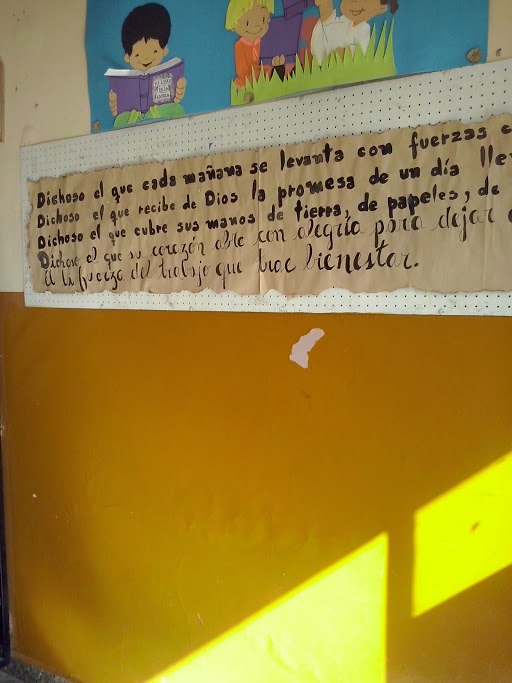 Dichoso el que cada mañana se levanta con fuerzas
Dichoso el que recibe de Dios la promesa de un día
Dichoso el que cubre sus manos de tierra, de papeles, de
Dichoso el que su corazón abre con alegría para dejar
de la fuerza del trabajo que trae bienestar.